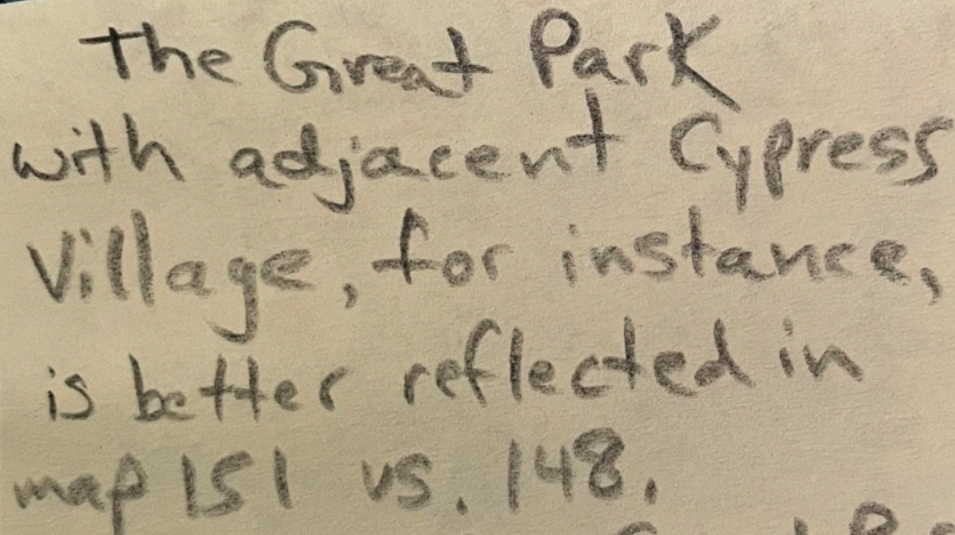 The Great Park
with adjacent Cypress
Village, for instance,
is better reflected in
map 151 vs. 148.